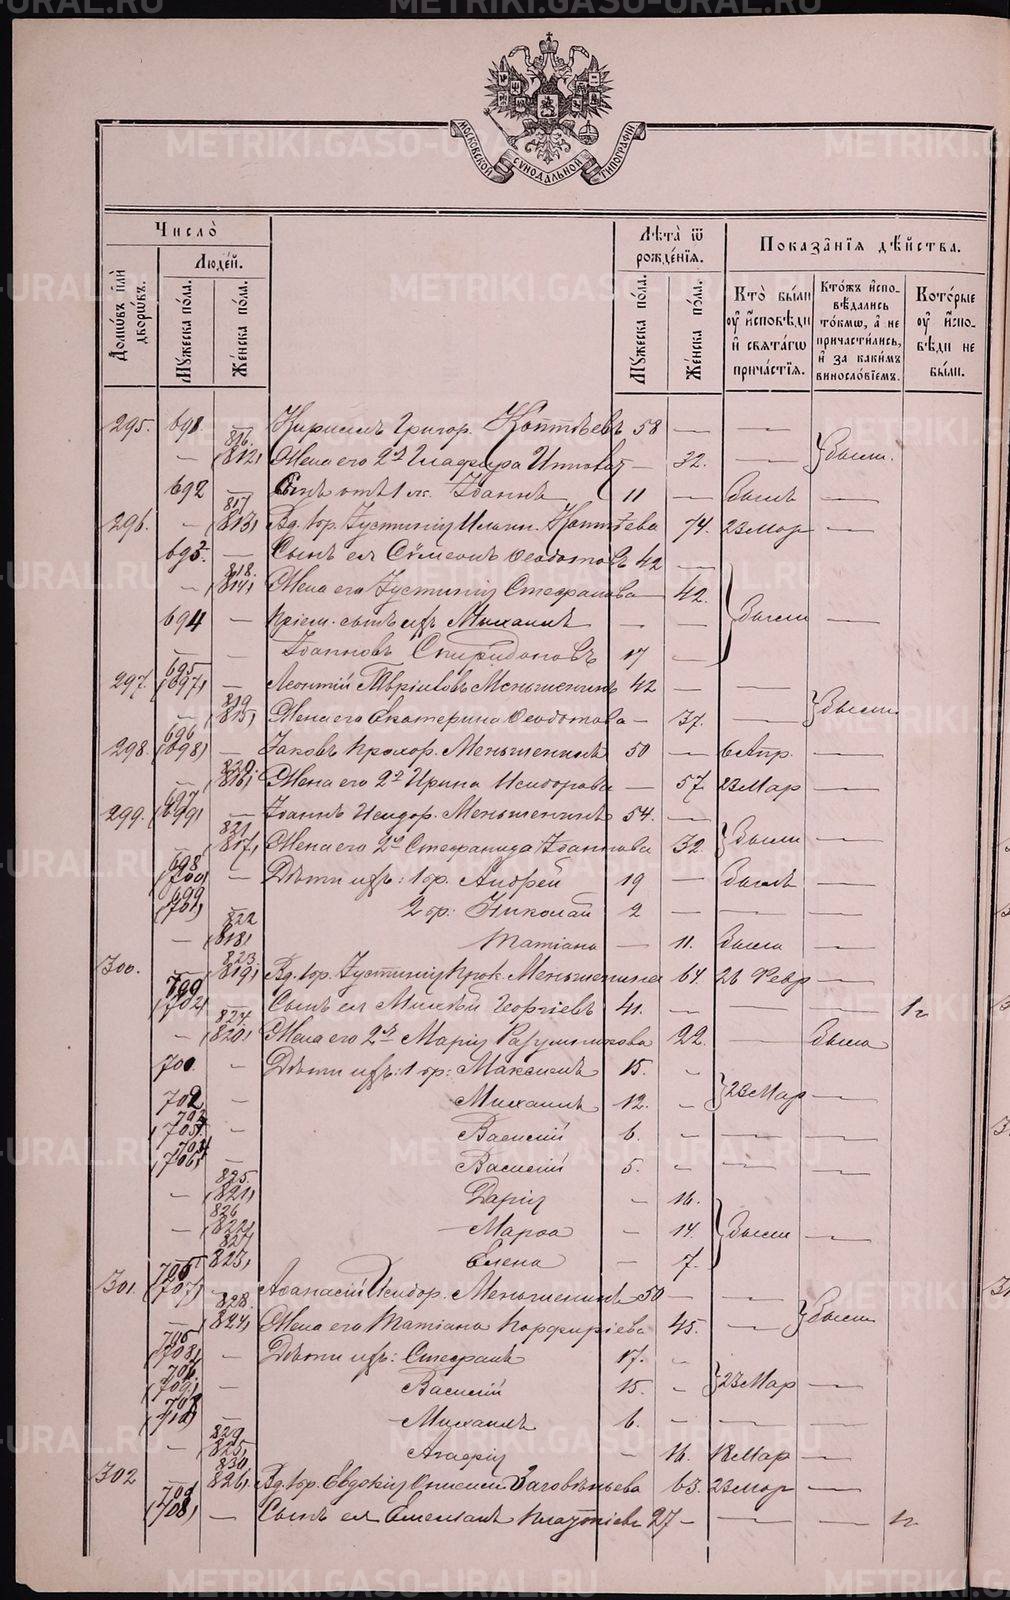 МОСКОВСКОЙ СУНОДАЛЬНОЙ ТИПОГРАФІИ
Число̀
Людей.
Домѡвъ и҆лѝ дворѡвъ.
Мꙋжеска по́ла.
Же́нска по́ла.
Лѣ́та ѿ рожде́нїѧ.
Мꙋжеска по́ла.
Же́нска по́ла.
Показа̑нїѧ дѣ́йства.
Кто̀ бы́ли ᲂу҆ и҆сповѣ́ди и҆ свѧта́гѡ прича́стїѧ.
Кто́жъ и҆спо-вѣ́дались то́кмѡ, а҆ не причасти́лись, и҆ за каки́мъ виносло́вїемъ.
Кото́рые ᲂу҆ и҆спо-вѣ́ди не бы́ли.
295. 691 — Кириллъ Григор. Коптѣевъ 58 — —
— 816. (812) Жена его 2я Глафира — 32. — } Были.
692 — Сынъ отъ 1 ж. Іоаннъ 11 — Былъ —
296. — 817 (813) Вд. кр. Іустинія Ильин. Коптѣева 74. 23 Мар —
693 — Сынъ ея Сѵмеонъ Ѳеодотовъ 42 —
— 818. (814) Жена его Іустинія Стефанова — 42. } Были —
694 — Пріем. сынъ ихъ Михаилъ — —
— Іоанновъ Спиридоновъ 17 —
297. 695 (697) — Леонтій Меньшенинъ 42 — —
— 819 (815) Жена его Екатерина Ѳеодотова — 37. — } Были
298. 696 (698) — Іаковъ Прохор. Меньшенинъ 50 — 6 Апр. —
— 820. (816) Жена его 2я Ирина Исидорова — 57. 23 Мар —
299. 697 (699) — Іоаннъ Исидор. Меньшенинъ 54. —
— 821. (817) Жена его 2я Стефанида Іоаннова 32. } Были —
698 (700) — Дѣти ихъ: 1 бр. Андрей 19 — Былъ —
699 (701) 2 бр: Николай 2 — — —
— 822 (818) Татіана — 11. Была —
300. — 823. (819) Вд. кр. Іустинія Прок. Меньшенина 64. 26 Февр —
(702) — Сынъ ея Георгіевъ 41. — — — 1 г
— 824 (820) Жена его 2я Марія Разумникова 22. — Была
700. — Дѣти ихъ: 1 бр: Максимъ 15. —
702 — Михаилъ 12. — } 23 Мар —
703 (705) — Василій 6. — — —
704 (706) — Василій 5. — — —
— 825. (821) Дарія — 16.
— 826 (822) Марѳа — 14. } Были —
827 (823) Елена — 7.
301. 705 (707) — Аѳанасій Исидор. Меньшенинъ 50 — —
— 828. (824) Жена его Татіана Порфиріева 45. — } Были
(708) — Дѣти ихъ: Стефанъ 17. —
(709) — Василій 15. — } 23 Мар —
(710) — Михаилъ 6. — — —
— 829 (825) Агафія — 16. 18 Мар —
302 — 830. (826) Вд. кр. Евдокія 63. 23 Мар —
709 (708) — Сынъ ея Емеліанъ 27 — — — 1 г
METRIKI.GASO-URAL.RU